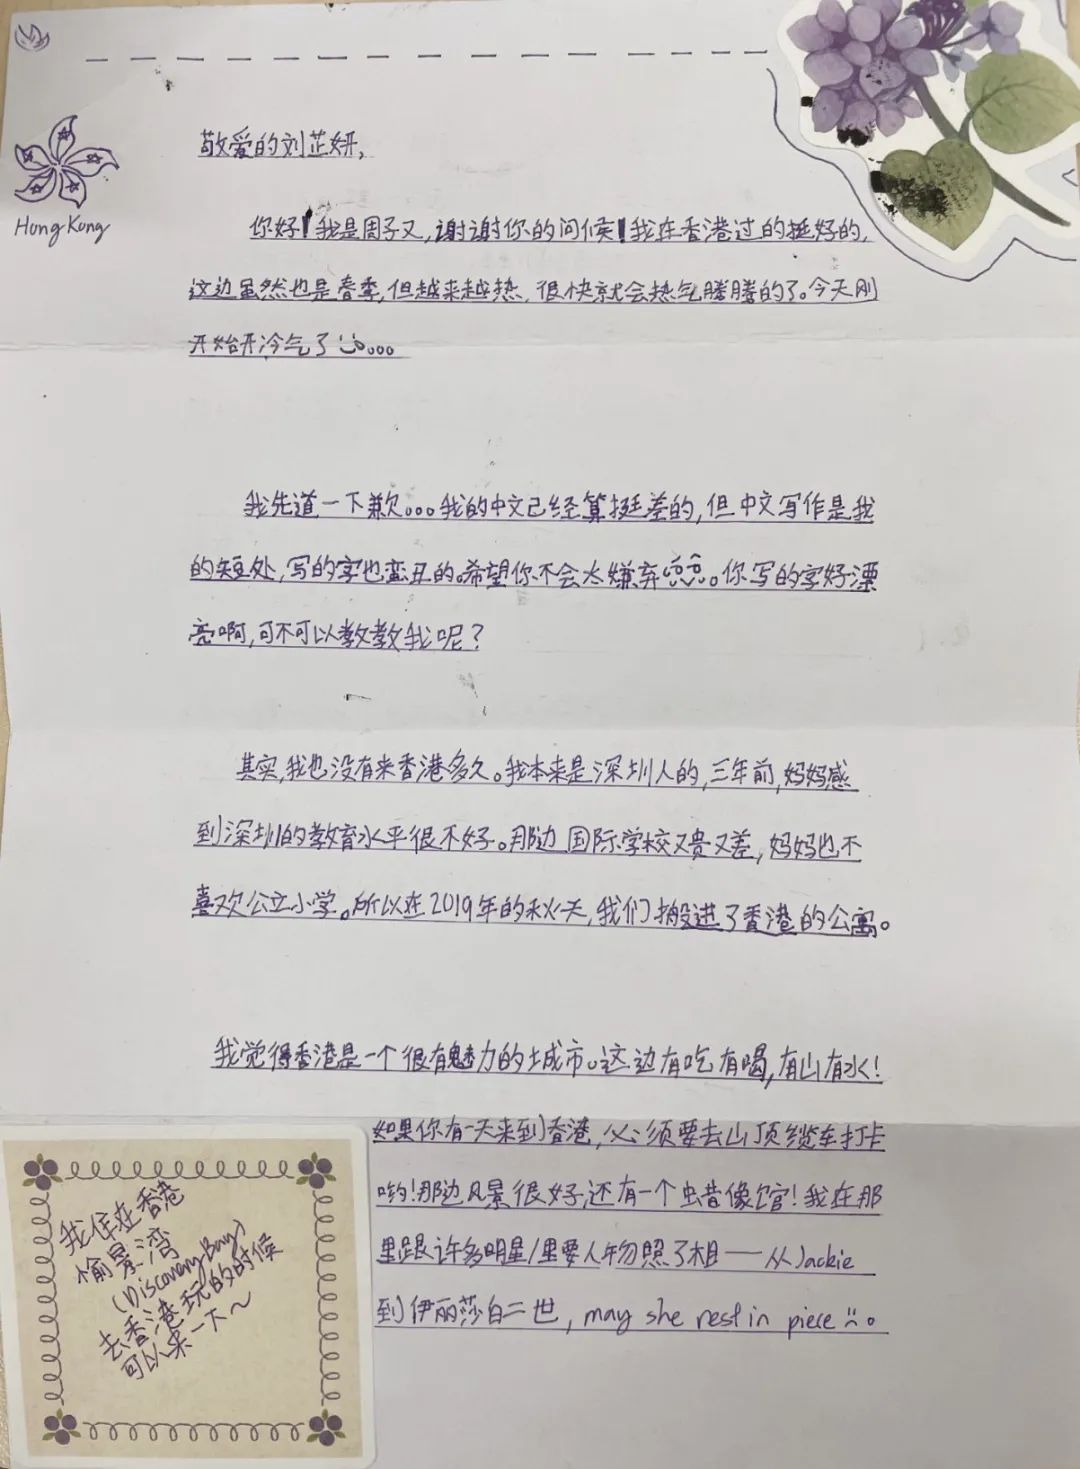 Hong Kong
敬爱的刘芷妍,
你好!我是周子又,谢谢你的问候!我在香港过的挺好的,
这边虽然也是春季,但越来越热,很快就会热气腾腾的了。今天刚
开始开冷气了
我先道一下歉。。。我的中文已经算挺差的,但中文写作是我
的短处,写的字也蛮丑的。希望你不会太嫌弃。你写的字好漂
亮啊,可不可以教教我呢?
其实,我也没有来香港多久。我本来是深圳人的,三年前,妈妈感
到深圳的教育水平很不好。那边国际学校又贵又差,妈妈也不
喜欢公立小学。所以在2019年的秋天,我们搬进了香港的公寓。
我觉得香港是一个很有魅力的城市。这边有吃有喝,有山有水!
如果你有一天来到香港,必须要去山顶缆车打卡
哟!那边风景很好,还有一个蜡像馆!我在那
里跟许多明星/重要人物照了相——从Jackie
到伊丽莎白二世,may she rest in piece
我住在香港
愉景湾
(Discovery Bay)
去香港玩的时候
可以来一下~